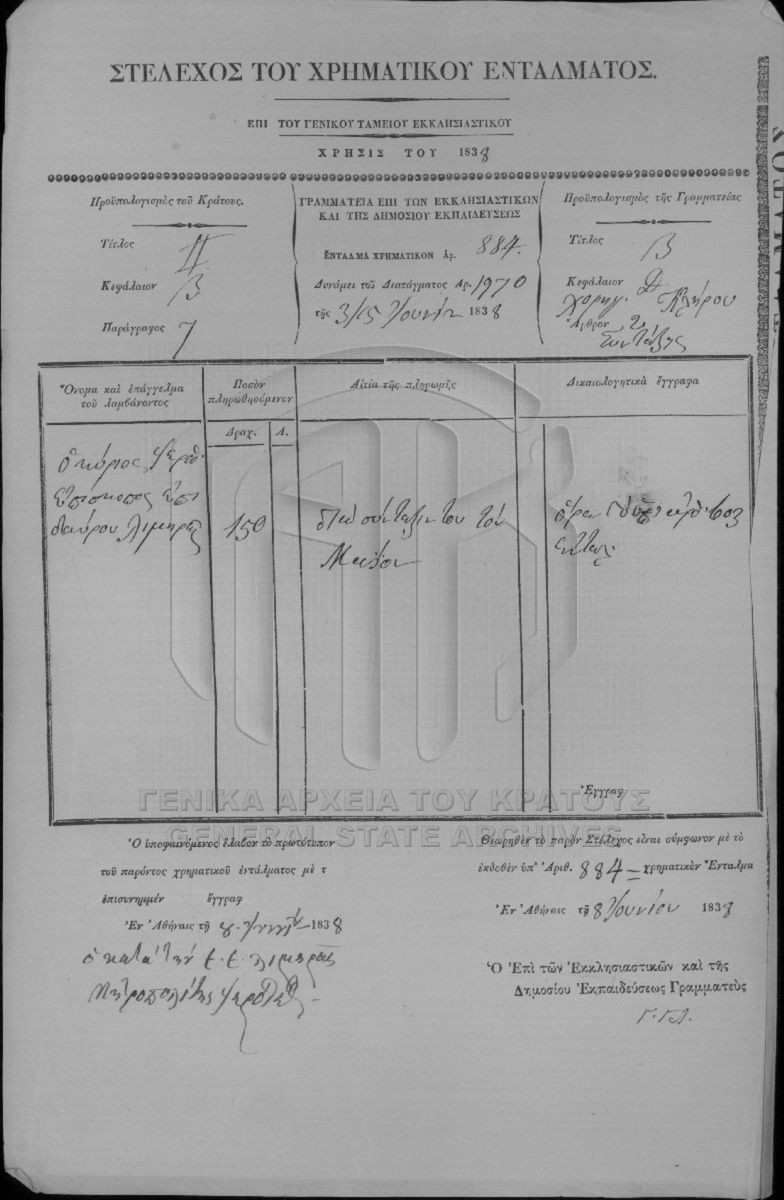 ΣΤΕΛΕΧΟΣ ΤΟΥ ΧΡΗΜΑΤΙΚΟΥ ΕΝΤΑΛΜΑΤΟΣ.
ΕΠΙ ΤΟΥ ΓΕΝΙΚΟΥ ΤΑΜΕΙΟΥ ΕΚΚΛΗΣΙΑΣΤΙΚΟΥ
ΧΡΗΣΙΣ ΤΟΥ 1838
Προϋπολογισμὸς τοῦ Κράτους.
Τίτλος II
Κεφάλαιον β
Παράγραφος 7
ΓΡΑΜΜΑΤΕΙΑ ΕΠΙ ΤΩΝ ΕΚΚΛΗΣΙΑΣΤΙΚΩΝ
ΚΑΙ ΤΗΣ ΔΗΜΟΣΙΟΥ ΕΚΠΑΙΔΕΥΣΕΩΣ
ἘΝΤΑΛΜΑ ΧΡΗΜΑΤΙΚΟΝ Ἀρ. 884.
Δυνάμει τοῦ Διατάγματος Αρ. 1970
τῆς 3/15 Ἰουνίου 1838
Προϋπολογισμὸς τῆς Γραμματείας
Τίτλος β
Κεφάλαιον Δ
Χορηγ. Κλήρου
Ἄρθρον 2
Συντάξεις
Ὄνομα καὶ ἐπάγγελμα
τοῦ λαμβάνοντος
Ποσὸν
πληρωθησόμενον
Δραχ. Λ.
Αἰτία τῆς πληρωμῆς
Δικαιολογητικὰ ἔγγραφα
ὁ κύριος Ἱερόθ.
Ἐπίσκοπος Ἐπι
δαύρου Λιμηρᾶς
150
διὰ σύνταξίν του τὸν
Μάϊον
ὅρα
Ἔγγραφ
ΓΕΝΙΚΑ ΑΡΧΕΙΑ ΤΟΥ ΚΡΑΤΟΥΣ
GENERAL STATE ARCHIVES
Ὁ ὑποφαινόμενος ἔλαβον τὸ πρωτότυπον
τοῦ παρόντος χρηματικοῦ ἐντάλματος μὲ τ
ἐπισυνημμέν ἔγγραφ
Ἐν Ἀθήναις τῇ 8 Ἰουνίου 1838
ὁ κατὰ τὴν Ε. Ε. Λιμηρᾶς
Μητροπολίτης Ἱερόθεος
Θεωρηθὲν τὸ παρὸν Στέλεχος εἶναι σύμφωνον μὲ τὸ
ἐκδοθὲν ὑπ' Ἀριθ. 884 = χρηματικὸν Ἔνταλμα
Ἐν Ἀθήναις τῇ 8 Ἰουνίου 1838
Ὁ Ἐπὶ τῶν Ἐκκλησιαστικῶν καὶ τῆς
Δημοσίου Ἐκπαιδεύσεως Γραμματεὺς